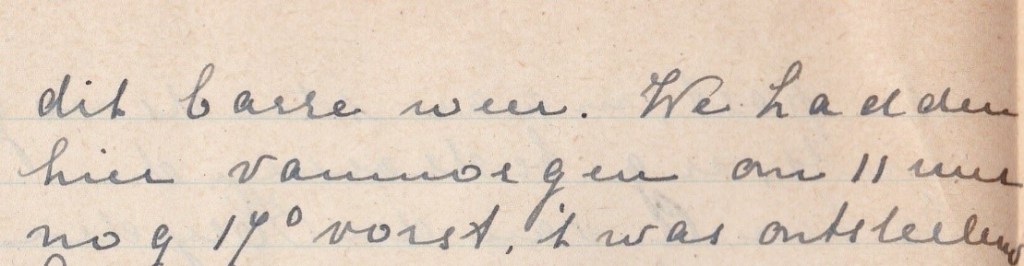 dit barre weer. We hadden
hier vanmorgen om 11 uur
nog 17° vorst, 't was ontstellend